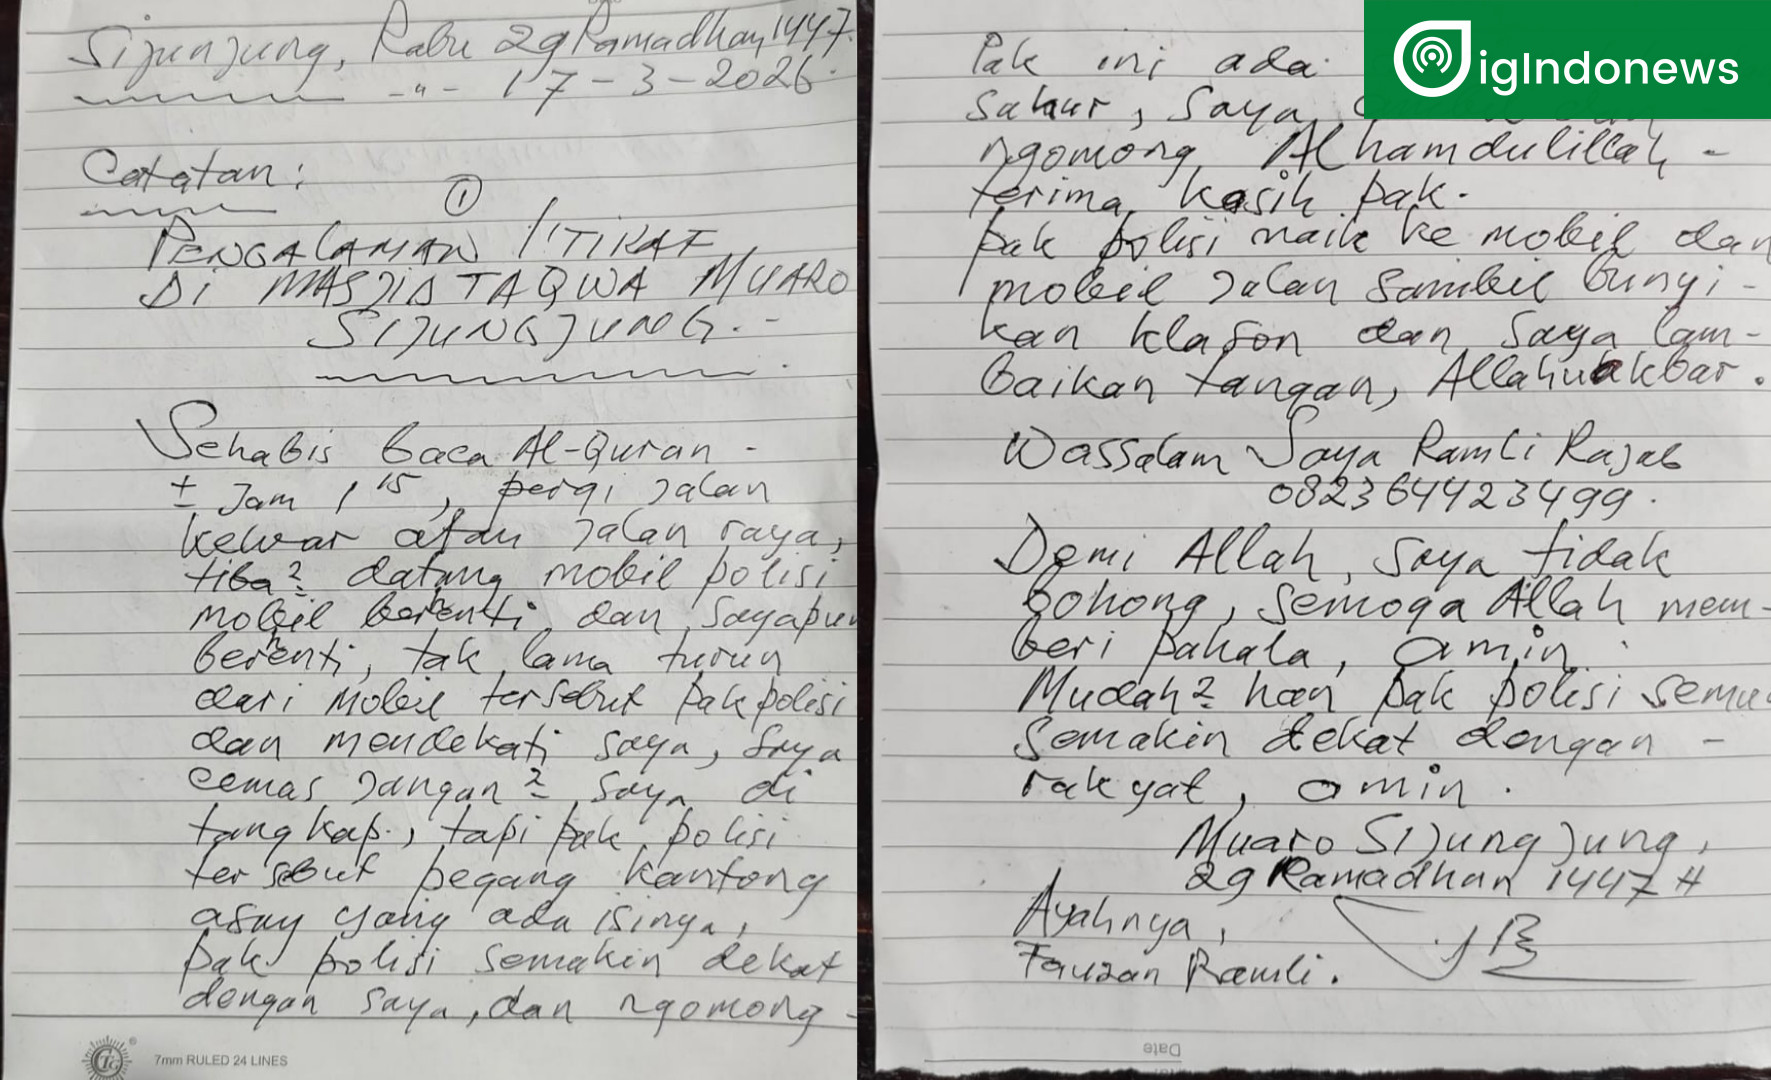 Sijunjung, Rabu 29 Ramadhan 1447.
-"- 17-3-2026.
Catatan:
①
PENGALAMAN I'TIKAF
DI MASJID TAQWA MUARO
SIJUNGJUNG.-
Sehabis baca Al-Quran -
± Jam 1 15, pergi jalan
keluar atau jalan raya,
tiba2 datang mobil polisi
mobil berhenti dan sayapun
berhenti, tak lama turun
dari mobil tersebut pak polisi
dan mendekati saya, saya
cemas jangan2 saya di
tangkap., tapi pak polisi
tersebut pegang kantong
asoy yang ada isinya,
pak polisi semakin dekat
dengan saya, dan ngomong -
7mm RULED 24 LINES
igIndonews
Pak ini ada
sahur, saya
ngomong Alhamdulillah -
terima kasih pak.
pak polisi naik ke mobil dan
mobil jalan sambil bunyi -
kan klason dan saya lam-
baikan tangan, Allahuakbar.
Wassalam Saya Ramli Rajab
082364423499.
Demi Allah, saya tidak
bohong, semoga Allah mem-
beri pahala, amin.
Mudah2 han pak polisi semu
semakin dekat dengan -
rakyat, amin.
Muaro Sijungjung,
29 Ramadhan 1447 H
Ayahnya,
Fauzan Ramli.
Date